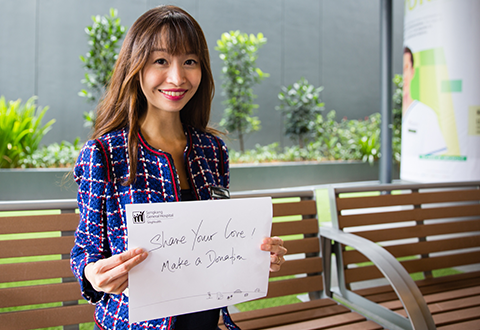 Sengkang
General Hospital
Share Your Love!
Make a Donation